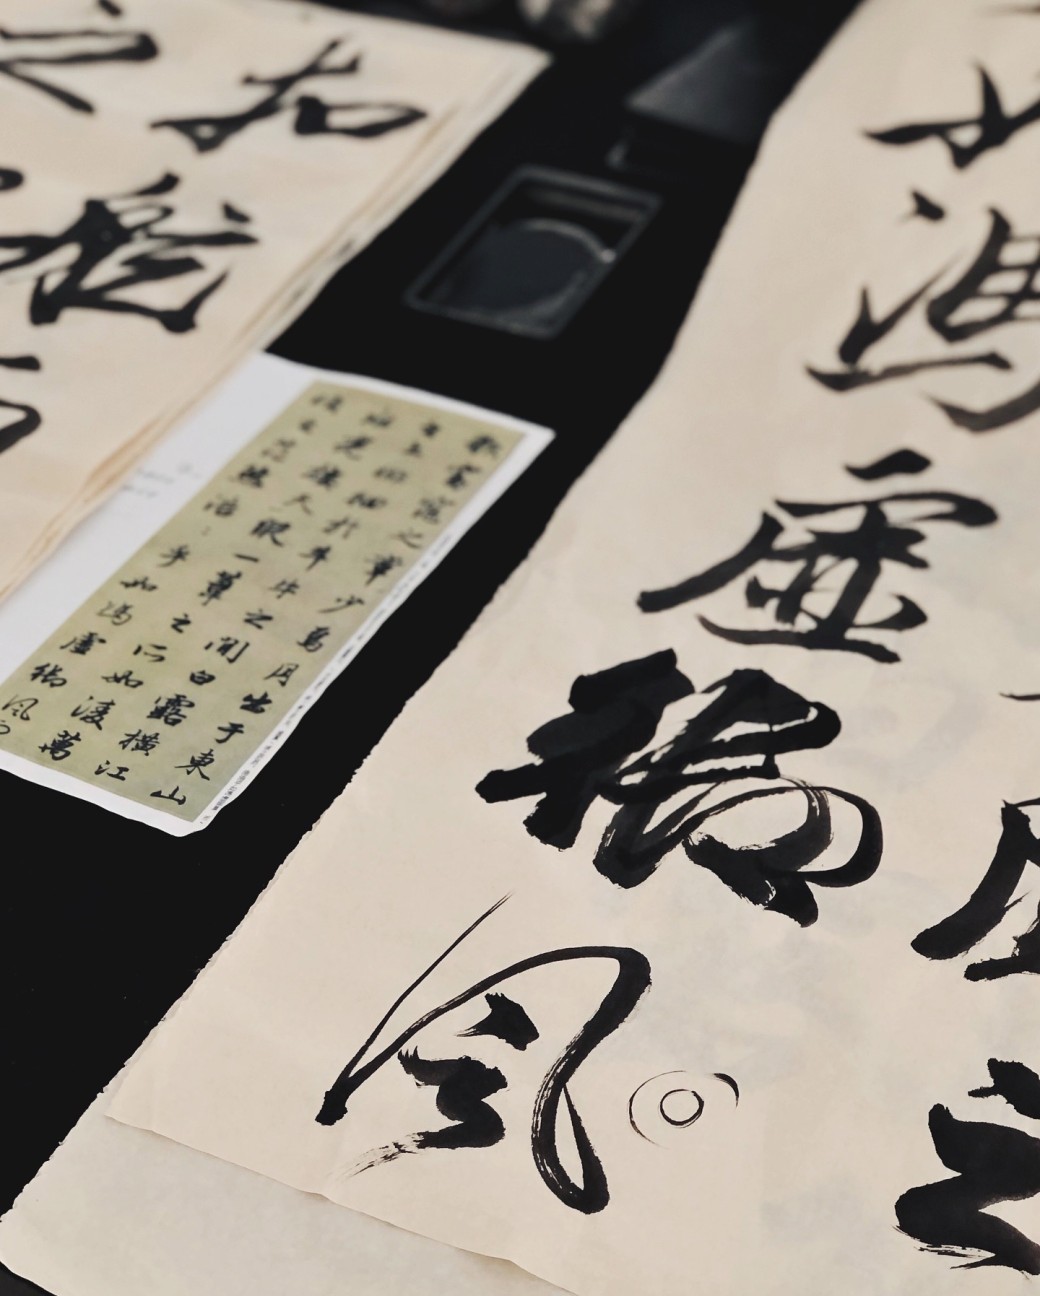 扣舷
之
歌窈窕之章少焉月出于東山
之上徘徊於斗牛之間白露橫江
水光接天縱一葦之所如凌萬
頃之茫然浩〻乎如馮虛御風
如馮虛御風